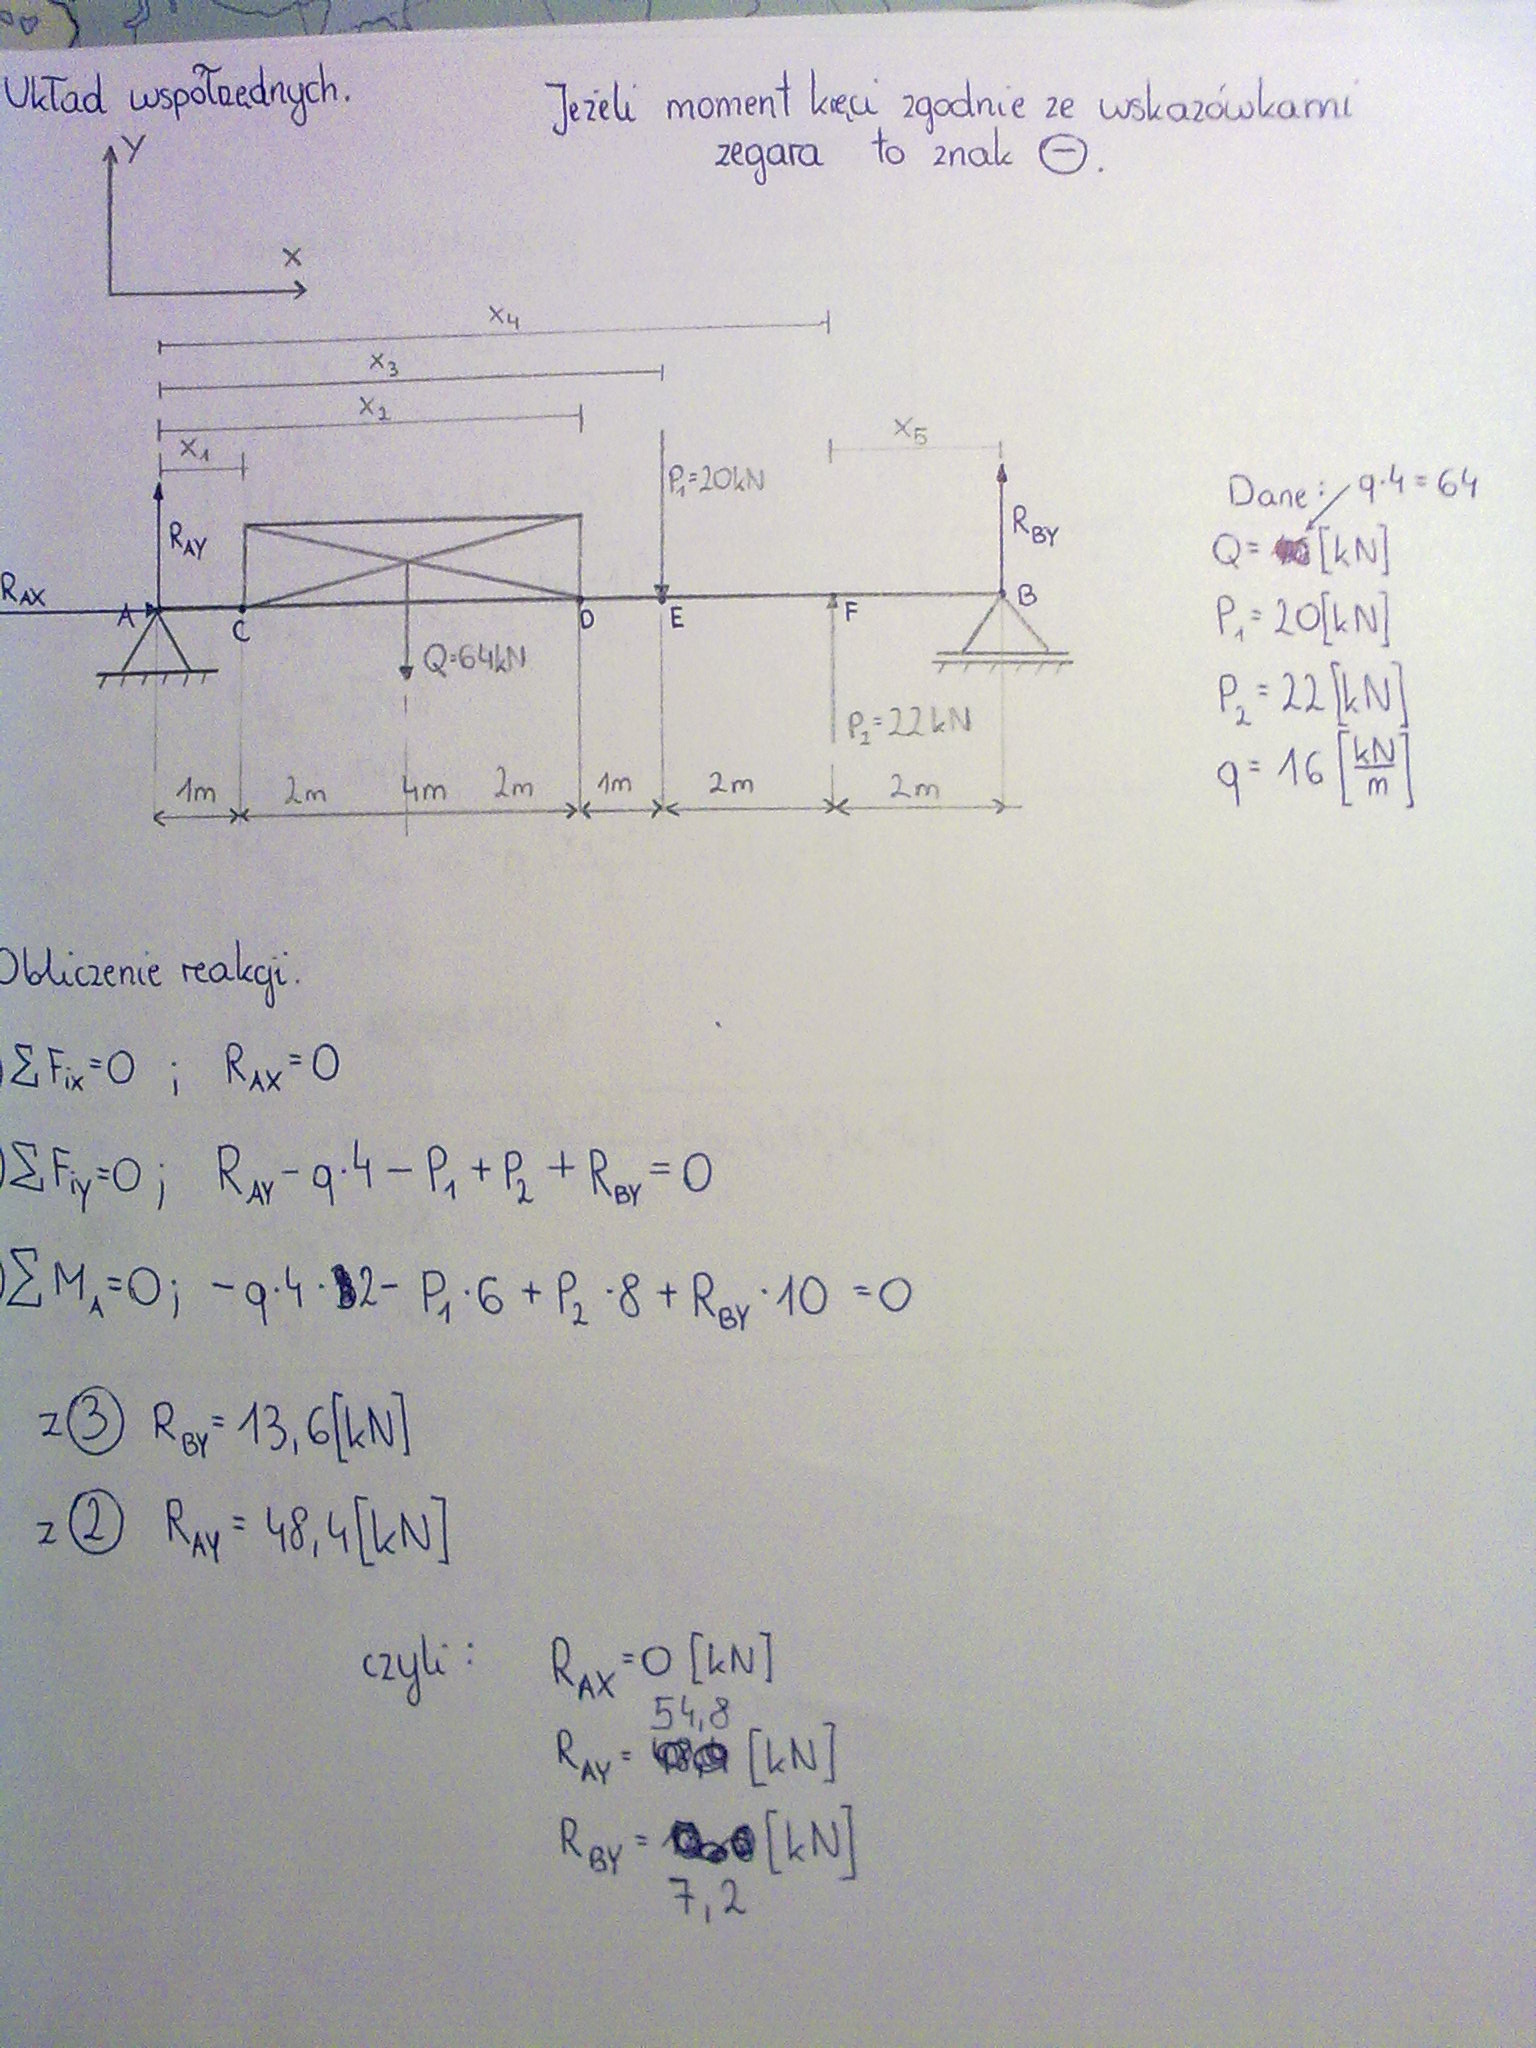 Układ współrzędnych.
Jeżeli moment kręci zgodnie ze wskazówkami
zegara to znak ⊖.
Y
X
x4
x3
x2
x1
x5
P1=20kN
RAY
RBY
RAX
A
C
D
E
F
B
Q=64kN
P2=22kN
1m 2m 4m 2m 1m 2m 2m
Dane: q·4=64
Q= [kN]
P1=20[kN]
P2=22[kN]
q=16 [kN/m]
Obliczenie reakcji.
ΣFix=0 ; RAX=0
ΣFiy=0 ; RAY - q·4 - P1 + P2 + RBY = 0
ΣMA=0; -q·4·2 - P1·6 + P2·8 + RBY·10 = 0
z ③ RBY=13,6[kN]
z ② RAY=48,4[kN]
czyli: RAX=0 [kN]
54,8
RAY= [kN]
RBY= [kN]
7,2